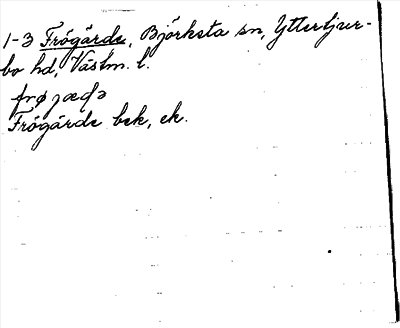 1-3 Frögärde, Björksta sn, Yttertjur-
bo hd, Västm. l.
frøjæɖə
Frögärde bek, ek.